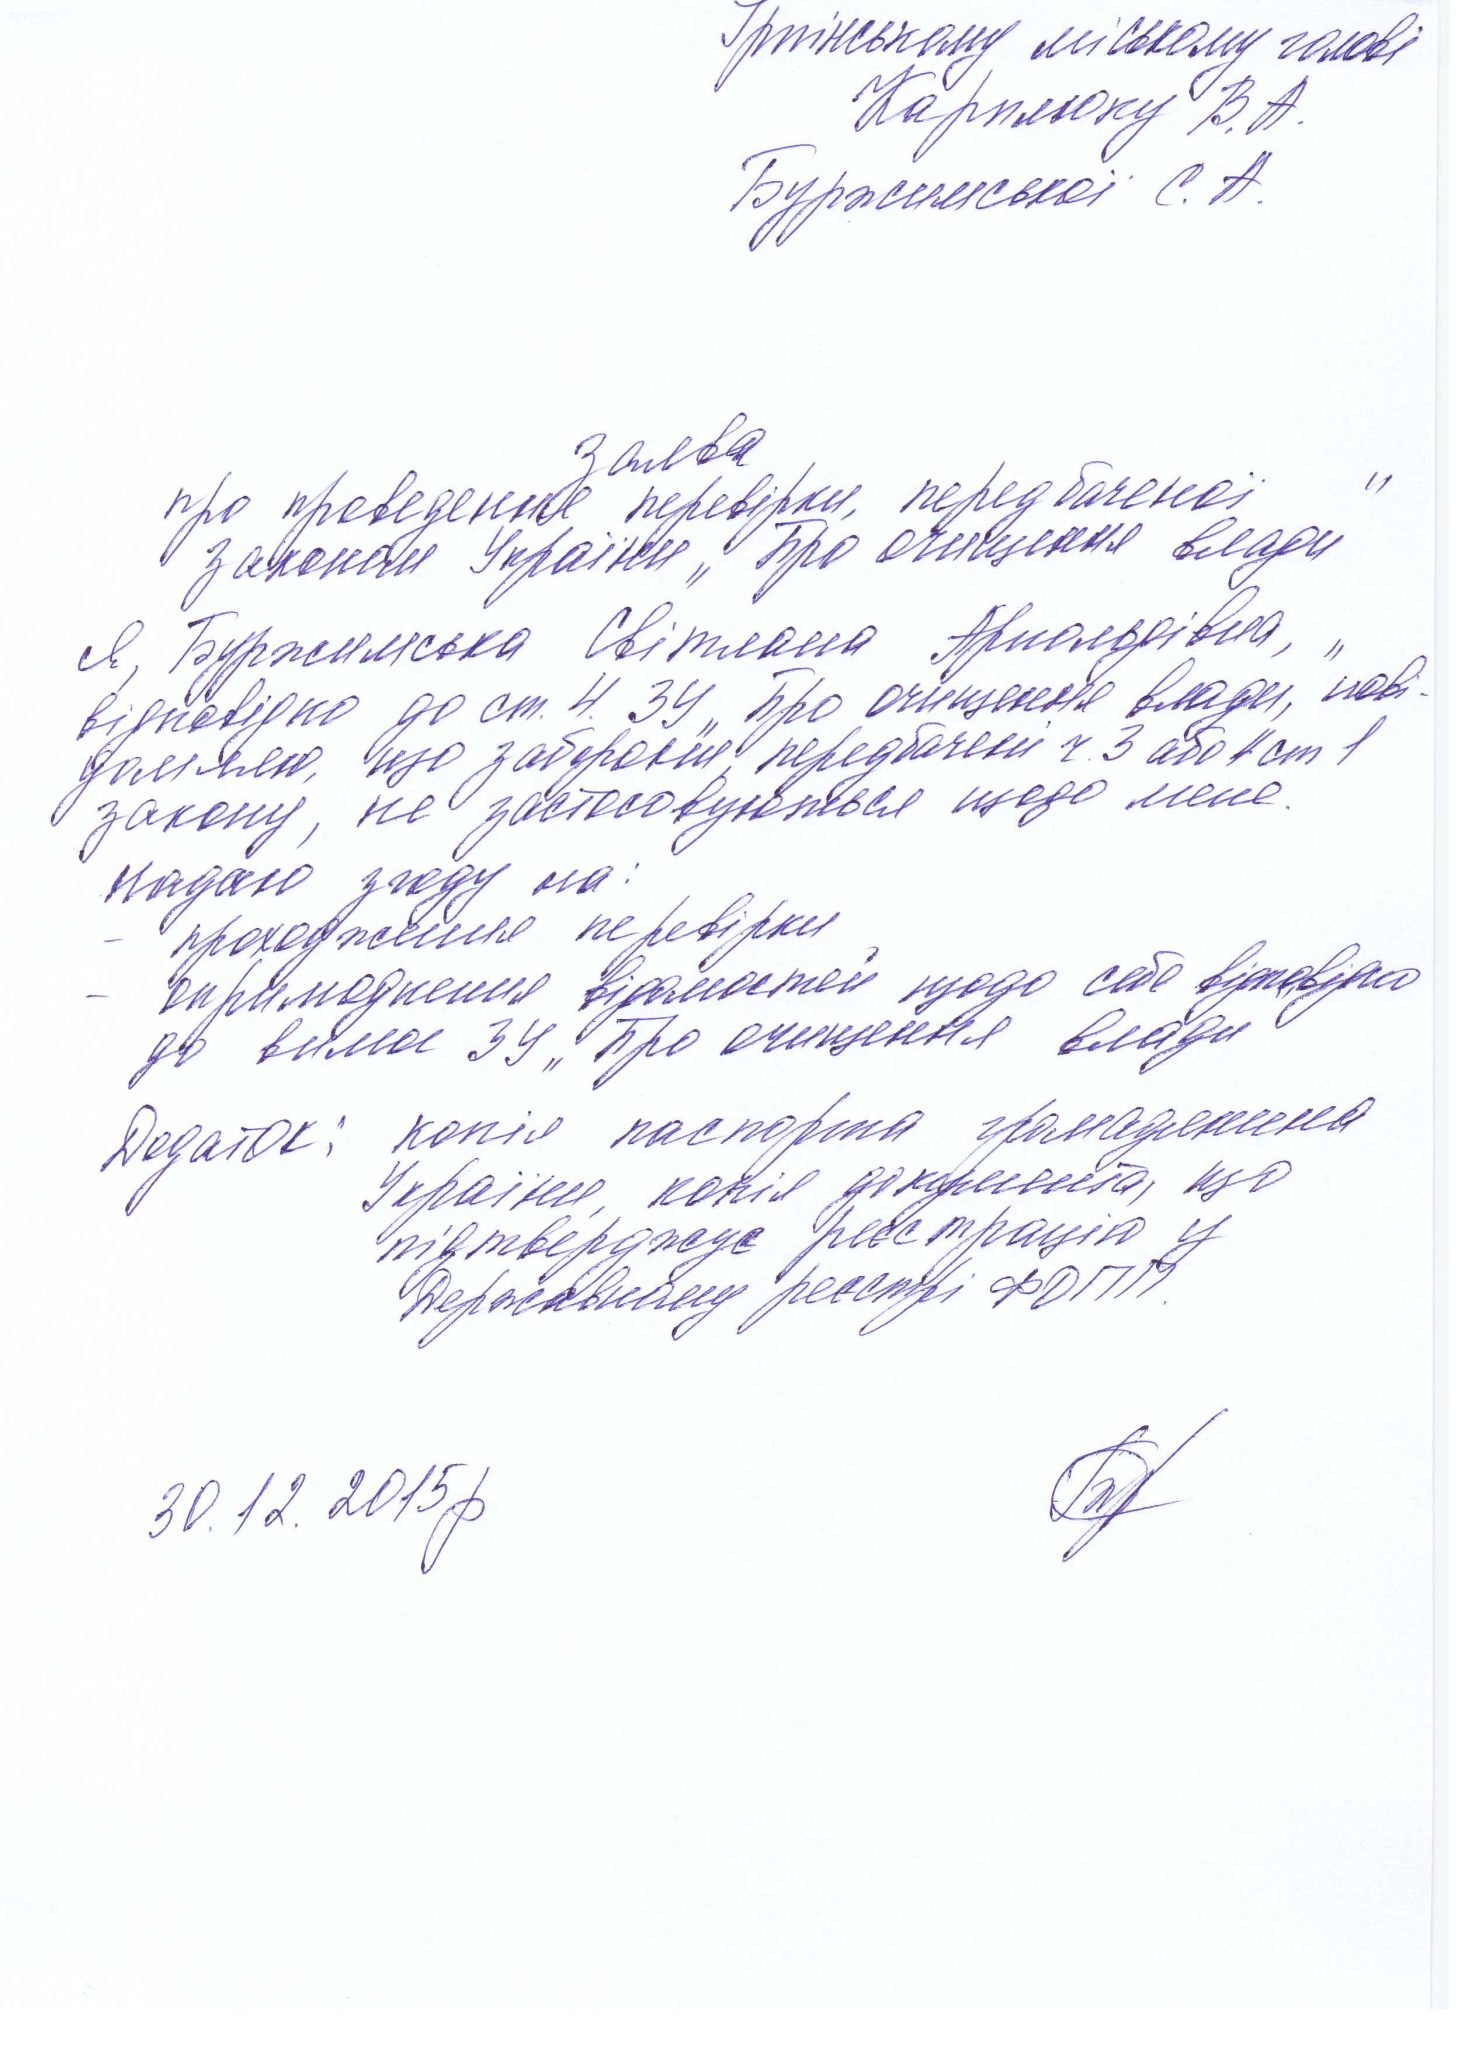 Ірпінському міському голові
Карплюку В. А.
Буржимської С. А.
Заява
про проведення перевірки, передбаченої
Законом України „Про очищення влади"
Я, Буржимська Світлана Арнольдівна,
відповідно до ст. 4. ЗУ „Про очищення влади", пові-
домляю, що заборони, передбачені ч. 3 або 4 ст 1
закону, не застосовуються щодо мене.
Надаю згоду на:
- проходження перевірки
- оприлюднення відомостей щодо себе відповідно
до вимог ЗУ „Про очищення влади
Додаток: копія паспорта громадянина
України, копія документа, що
підтверджує реєстрацію у
Державному реєстрі ФОПП.
30.12.2015р